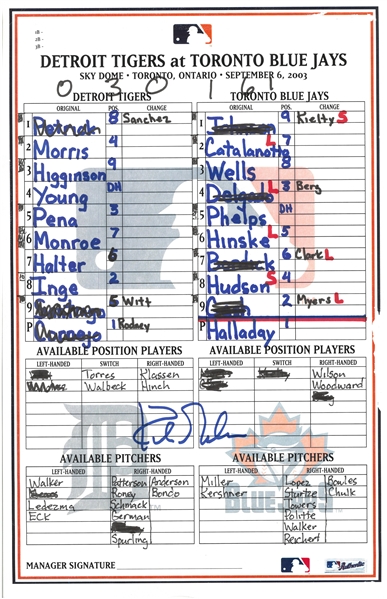 1B -
2B -
3B -
DETROIT TIGERS at TORONTO BLUE JAYS
SKY DOME • TORONTO, ONTARIO • SEPTEMBER 6, 2003
0 3 0 1 6 1
DETROIT TIGERS
ORIGINAL POS. CHANGE
1 8 Sanchez
2 Morris 4
3 Higginson 9
4 Young DH
5 Pena 3
6 Monroe 7
7 Halter 6
8 Inge 2
9 5 Witt
P Cornejo 1 Rodney
TORONTO BLUE JAYS
ORIGINAL POS. CHANGE
1 Johnson 9 Kielty S
2 Catalanotto L 7
3 Wells 8
4 Delgado L 3 Berg
5 Phelps DH
6 Hinske L 5
7 Bordick 6 Clark L
8 Hudson S 4
9 Cash 2 Myers L
P Halladay 1
AVAILABLE POSITION PLAYERS
LEFT-HANDED SWITCH RIGHT-HANDED
Torres Klassen
Walbeck Hinch
AVAILABLE POSITION PLAYERS
LEFT-HANDED SWITCH RIGHT-HANDED
Wilson
Woodward
AVAILABLE PITCHERS
LEFT-HANDED RIGHT-HANDED
Walker Patterson Anderson
Roney Bondo
Ledezma Schmack
ECK German
Spurling
AVAILABLE PITCHERS
LEFT-HANDED RIGHT-HANDED
Miller Lopez Bowles
Kershner Sturtze Chulk
Towers
Politte
Walker
Reichert
BLUE JAYS
MANAGER SIGNATURE
Authentic